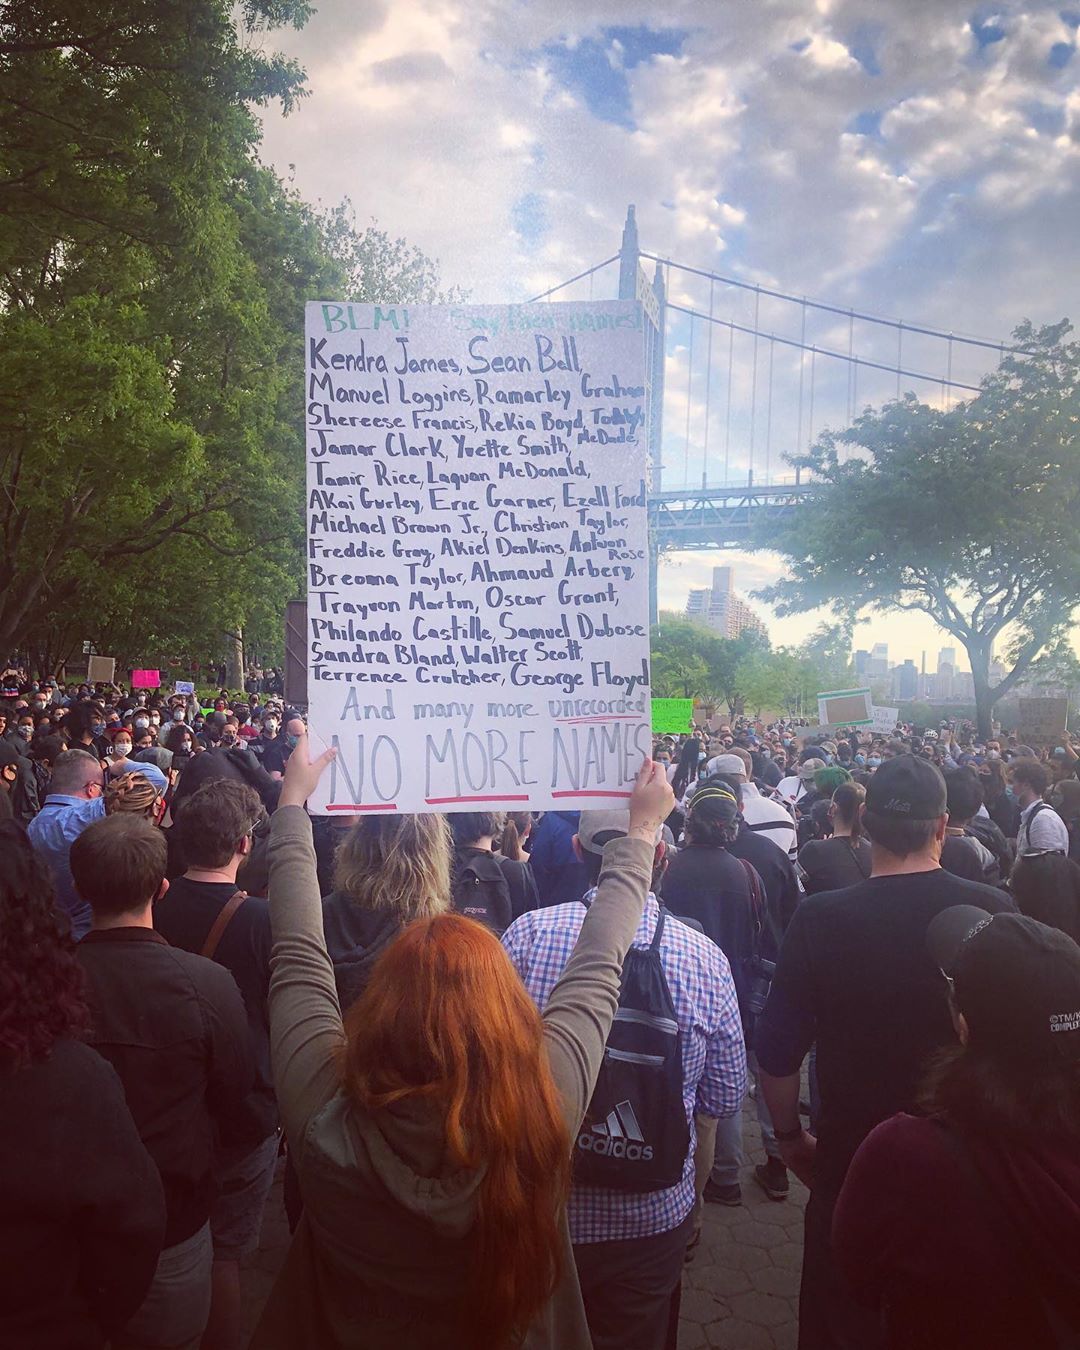 BLM! Say their names!
Kendra James, Sean Bell,
Manuel Loggins, Ramarley Graham
Shereese Francis, Rekia Boyd,
McDade,
Jamar Clark, Yvette Smith,
Tamir Rice, Laquan McDonald,
Akai Gurley, Eric Garner, Ezell Ford
Michael Brown Jr., Christian Taylor,
Freddie Gray, Akiel Denkins, Antwon
Rose
Breonna Taylor, Ahmaud Arbery,
Trayvon Martin, Oscar Grant,
Philando Castille, Samuel Dubose
Sandra Bland, Walter Scott,
Terrence Crutcher, George Floyd
And many more unrecorded
NO MORE NAMES
adidas
©TM/